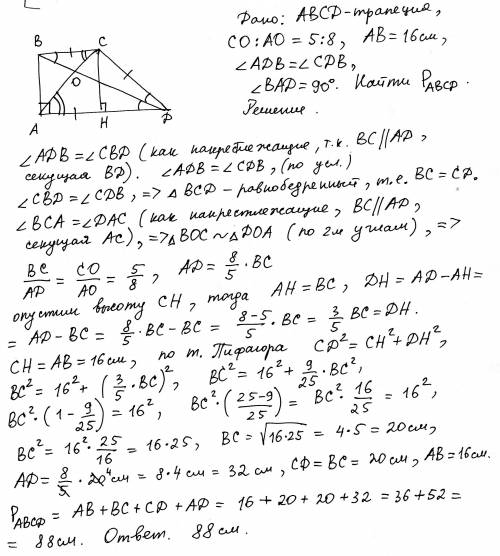 Дано: ABCD-трапеция,
CO:AO = 5:8, AB = 16см,
∠ADB = ∠CDB,
∠BAD = 90°. Найти P_ABCD.
Решение.
B C
O
A H D
∠ADB = ∠CBD (как накрестлежащие, т.к. BC∥AD,
секущая BD). ∠ADB = ∠CDB, (по усл.)
∠CBD = ∠CDB, => △BCD - равнобедренный, т.е. BC = CD.
∠BCA = ∠DAC (как накрестлежащие, BC∥AD,
секущая AC), => △BOC ~ △DOA (по 2м углам), =>
BC/AD = CO/AO = 5/8, AD = 8/5 · BC
опустим высоту CH, тогда AH = BC, DH = AD - AH =
= AD - BC = 8/5 · BC - BC = (8-5)/5 · BC = 3/5 BC = DH.
CH = AB = 16см, по т. Пифагора CD² = CH² + DH²,
BC² = 16² + (3/5 · BC)², BC² = 16² + 9/25 · BC²,
BC² · (1 - 9/25) = 16², BC² · (25-9)/25 = BC² · 16/25 = 16²,
BC² = 16² · 25/16 = 16·25, BC = √16·25 = 4·5 = 20см,
AD = 8/5 · 20⁴см = 8·4см = 32 см, CD = BC = 20см, AB = 16см.
P_ABCD = AB + BC + CD + AD = 16 + 20 + 20 + 32 = 36 + 52 =
= 88см. Ответ. 88см.